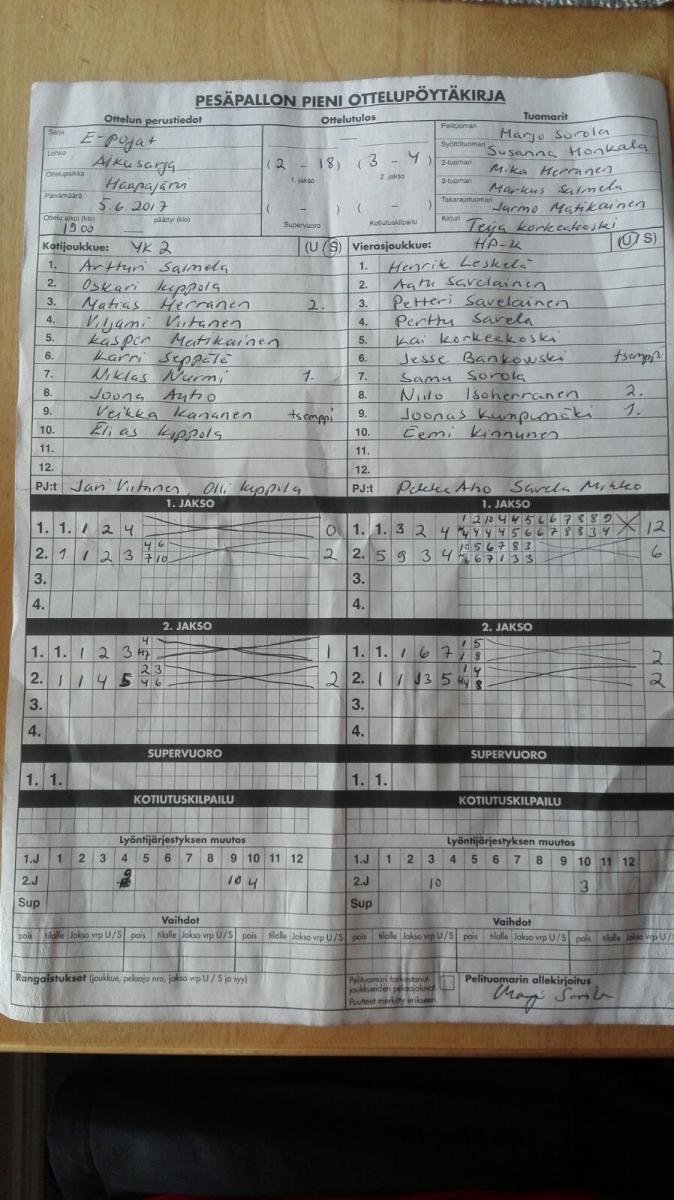 PESÄPALLON PIENI OTTELUPÖYTÄKIRJA
Ottelun perustiedot
Sarja E-pojat
Lohko Alkusarja
Ottelupaikka Haapajärvi
Päivämäärä 5.6.2017
Ottelu alkoi (klo) päättyi (klo)
1900
Ottelutulos
(2 - 18) (3 - 4)
1. jakso 2. jakso
( - ) ( - )
Supervuoro Kotiutuskilpailu
Tuomarit
Pelituomari Marjo Sorola
Syöttötuomari Susanna Honkala
2-tuomari Mika Herranen
3-tuomari Markus Salmela
Takarajatuomari Jarmo Matikainen
Kirjuri Teija Korkeakoski
Kotijoukkue: YK 2 (U / S)
1. Artturi Salmela
2. Oskari Kippola
3. Matias Herranen 2.
4. Viljami Viitanen
5. Kasper Matikainen
6. Karri Seppälä
7. Niklas Nurmi 1.
8. Joona Autio
9. Veikka Kananen tsemppi
10. Elias Kippola
11.
12.
PJ:t Jari Viitanen, Olli Kippola
Vierasjoukkue: HP-K (U / S)
1. Henrik Leskelä
2. Aatu Savelainen
3. Petteri Savelainen
4. Perttu Savela
5. Kai Korkeakoski
6. Jesse Bankowski tsemppi
7. Samu Sorola
8. Niilo Isoherranen 2.
9. Joonas Kumpumäki 1.
10. Eemi Kinnunen
11.
12.
PJ:t Pekka Aho Savela Mikko
1. JAKSO
1. 1. 1 2 4 0
2. 1 1 2 3 4 6 2
7 10
3.
4.
1. JAKSO
1. 1. 3 2 4 12
2. 5 9 3 4 6
3.
4.
2. JAKSO
1. 1. 1 2 3 1
2. 1 1 4 5 2 3 2
4 6
3.
4.
2. JAKSO
1. 1. 1 6 7 1 5 2
1 8
2. 1 1 3 5 1 4 2
3.
4.
SUPERVUORO
1. 1.
SUPERVUORO
1. 1.
KOTIUTUSKILPAILU
KOTIUTUSKILPAILU
Lyöntijärjestyksen muutos
1.J 1 2 3 4 5 6 7 8 9 10 11 12
2.J 9 10 4
Sup
Lyöntijärjestyksen muutos
1.J 1 2 3 4 5 6 7 8 9 10 11 12
2.J 10 3
Sup
Vaihdot
pois tilalle Jakso vrp U/S pois tilalle Jakso vrp U/S pois tilalle Jakso vrp U/S
Vaihdot
pois tilalle Jakso vrp U/S pois tilalle Jakso vrp U/S pois tilalle Jakso vrp U/S
Rangaistukset (joukkue, pelaaja nro, jakso vrp U / S ja syy)
Pelituomari tarkastanut
joukkueiden pelaajaluvat.
Puutteet merkitty erikseen.
Pelituomarin allekirjoitus